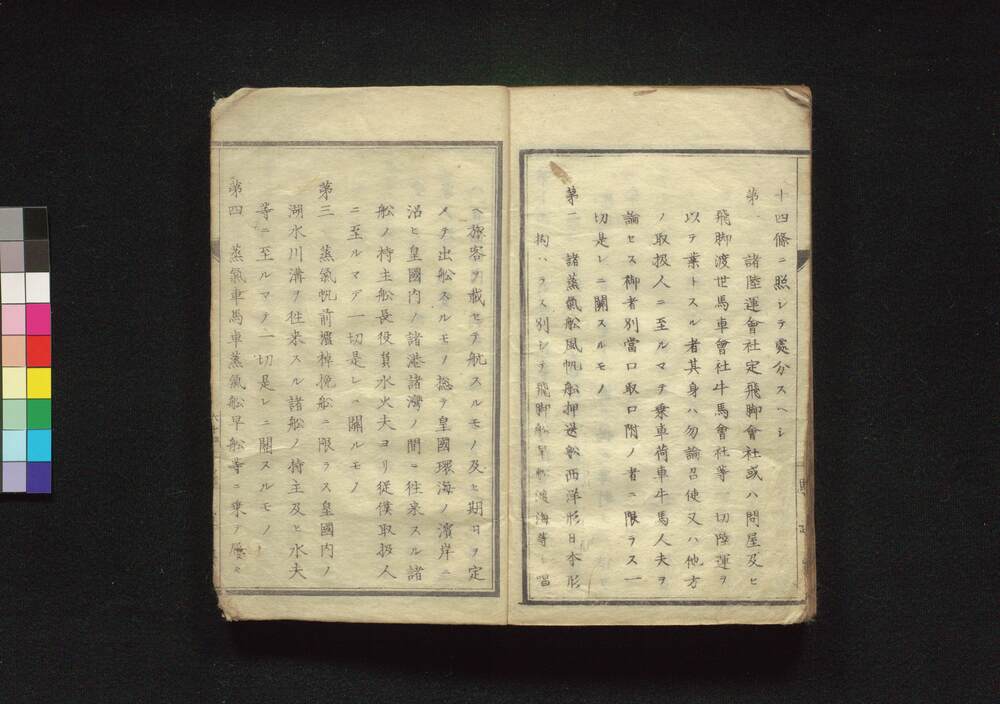 十四條ニ照シテ處分スヘシ
第一 諸陸運會社定飛脚會社或ハ問屋及ヒ
飛脚渡世馬車會社牛馬會社等一切陸運ヲ
以テ業トスル者其身ハ勿論召使又ハ他方
ノ取扱人ニ至ルマテ乗車荷車牛馬人夫ヲ
論セス御者別當口取口附ノ者ニ限ラス一
切是レニ關スルモノ
第二 諸蒸氣舩風帆舩押送舩西洋形日本形
拘ハラス別シテ飛脚舩早舩渡海等ト唱
ヘ旅客ヲ載セテ航スルモノ及ヒ期日ヲ定
メテ出舩スルモノ捴テ皇國環海ノ濱岸ニ
沿ヒ皇國内ノ諸港諸灣ノ間ニ往来スル諸
舩ノ持主舩長役員水火夫ヨリ従僕取扱人
ニ至ルマテ一切是レニ關ルモノ
第三 蒸氣帆前艪棹挽舩ニ限ラス皇國内ノ
湖水川溝ヲ往来スル諸舩ノ持主及ヒ水夫
等ニ至ルマテ一切是レニ關スルモノ
第四 蒸氣車馬車蒸氣舩早舩等ニ乗テ屡々